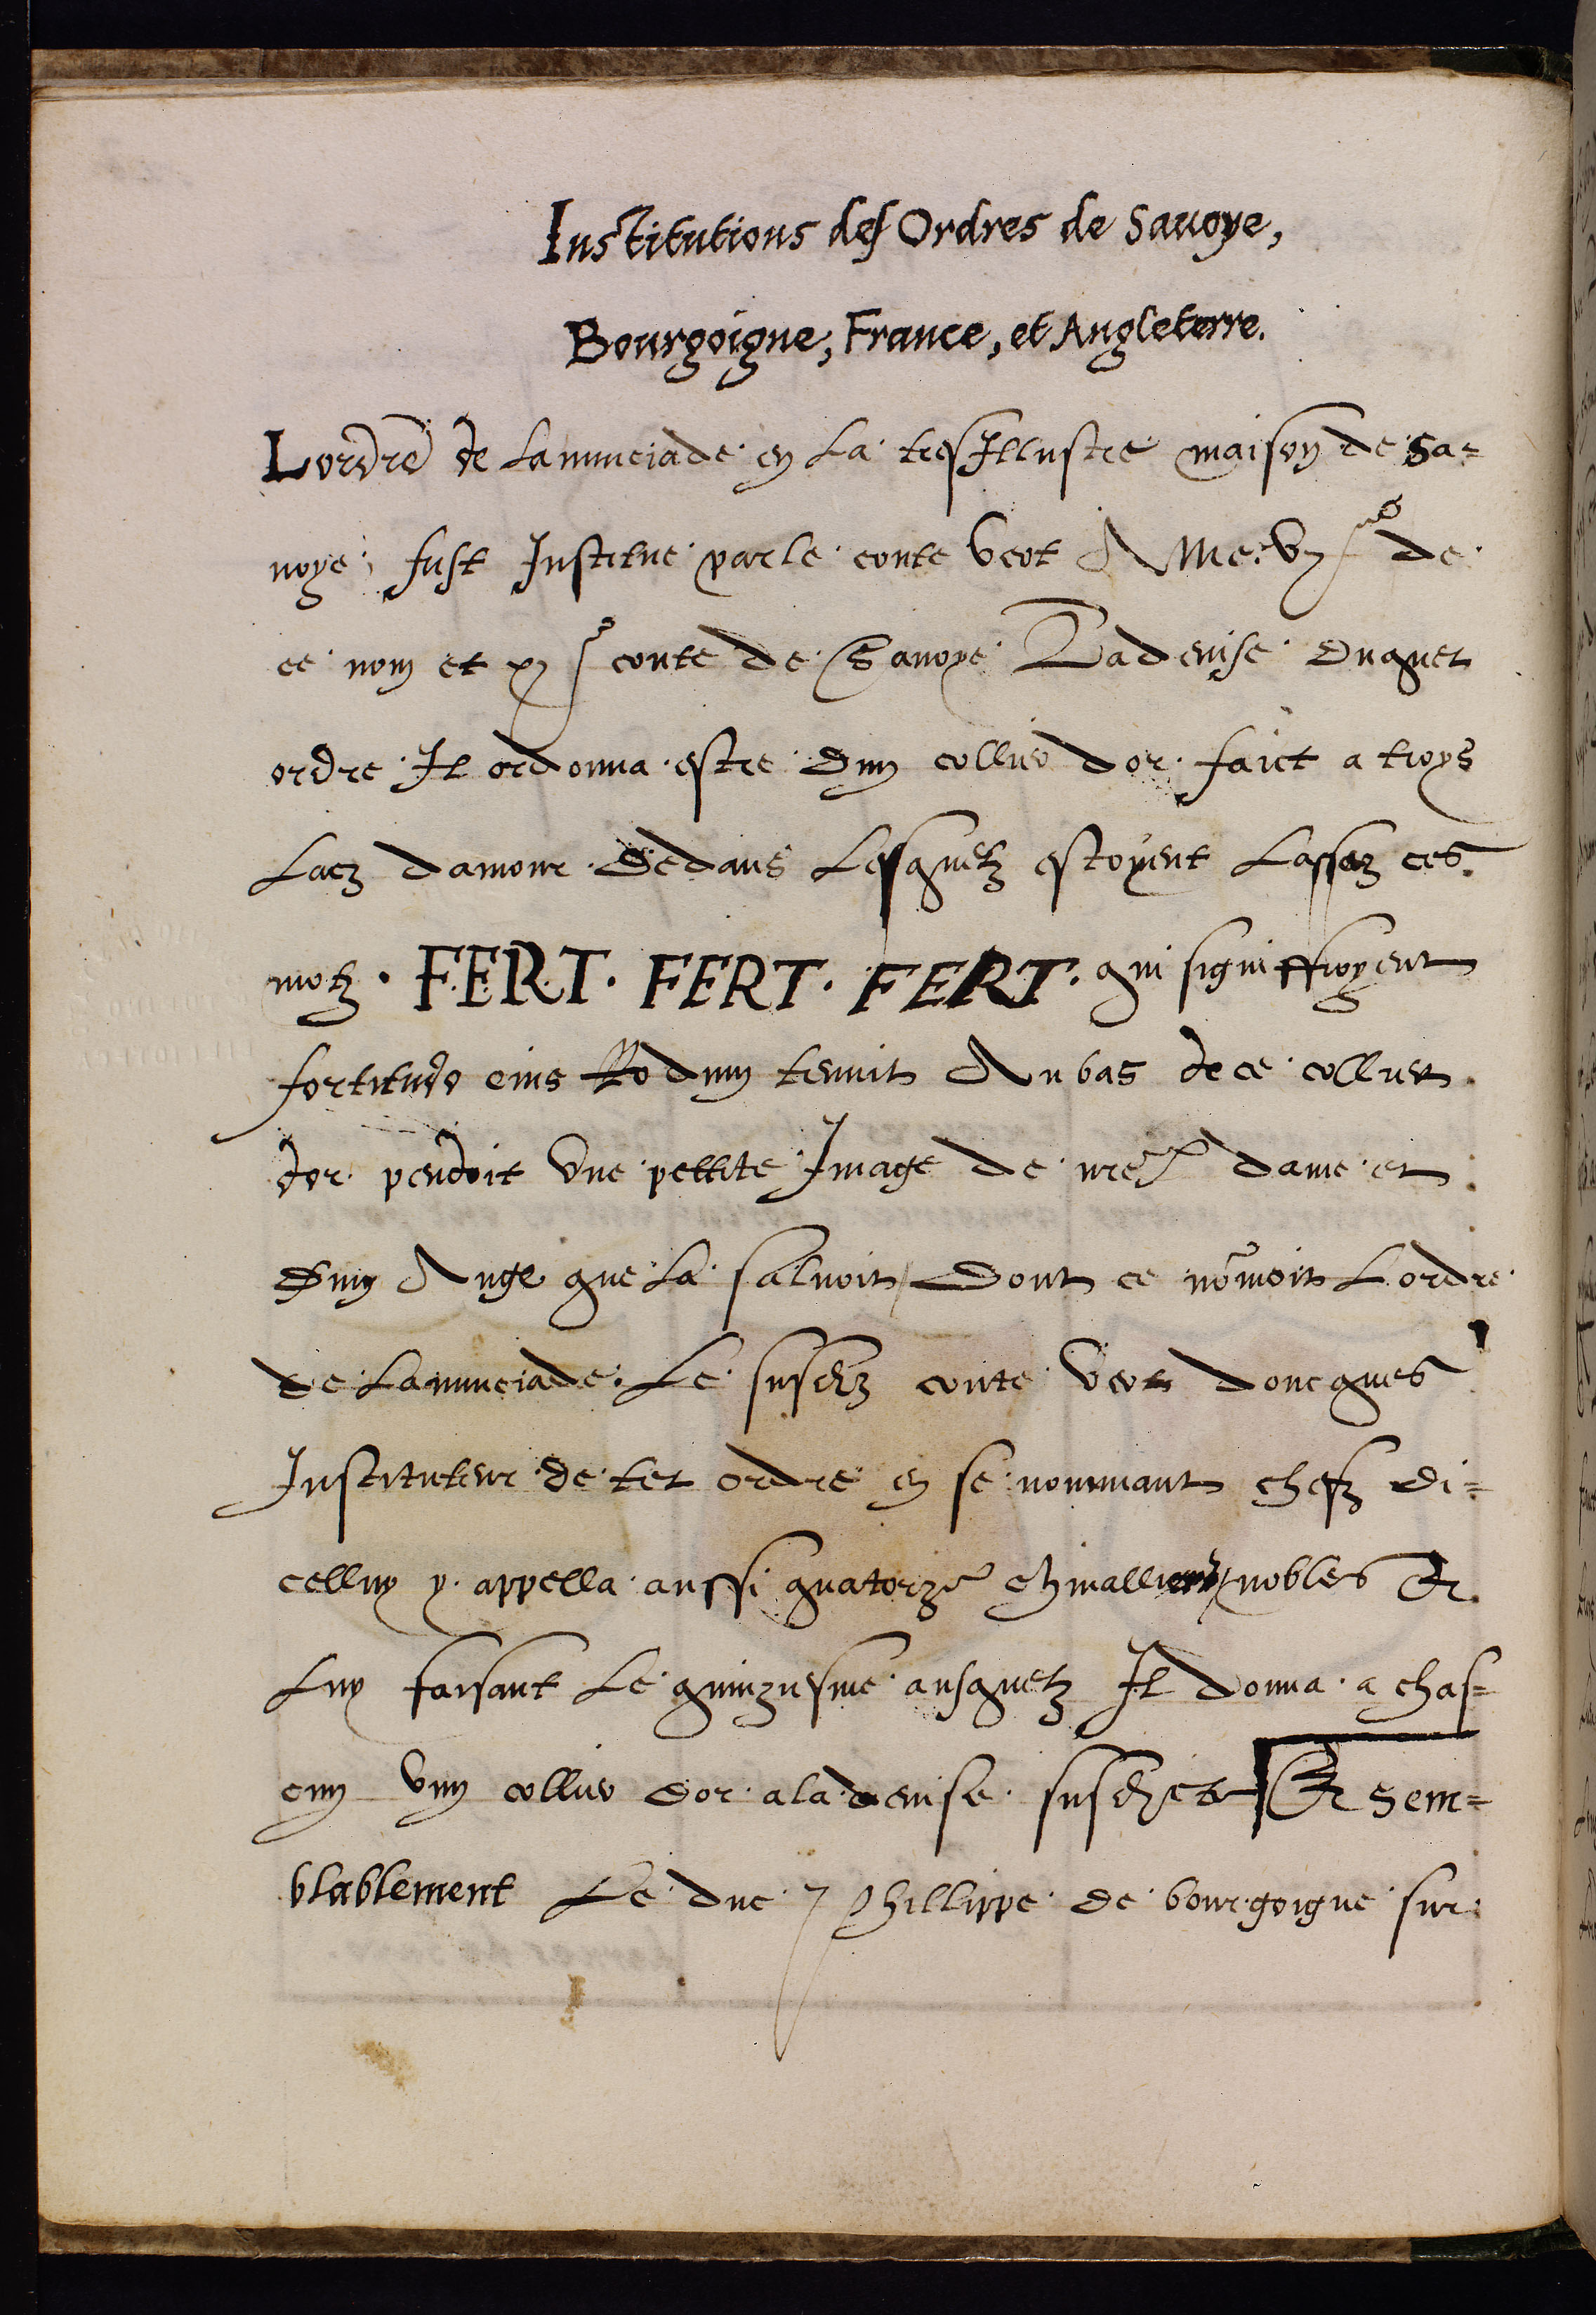 Institutions des Ordres de Sauoye,
Bourgoigne, France, et Angleterre.
Lordre de Lanunciade en La tresIllustre maison de Sa=
uoye, fust Institue par le conte Vert Ame. vj.e de
ce nom et xvj.e conte de Sauoye La deuise duquel
ordre Il ordonna estre dun collier dor faict a troys
Lacz damour dedans Lesquelz estoyent Lassez ces
motz . FERT . FERT . FERT . qui signiffioyent
fortitudo eius Rodum tenuit Au bas de ce collier
dor pendoit Vne pettite Image de nre dame et
dun Ange que La saluoit / Dont ce nōmoit Lordre
de Lanunciade. Le susdz conte Vert doncques
Instituteur de tel ordre en se nommant chefz di=
celluy y appella aussi quatorze chīualliers nobles Et
Luy faisant Le quinziesme ausquelz Il donna a chas=
cun Vng collier dor a la deuise susdicte Et sem=
blablement Le duc Phillippe de bourgoigne sur